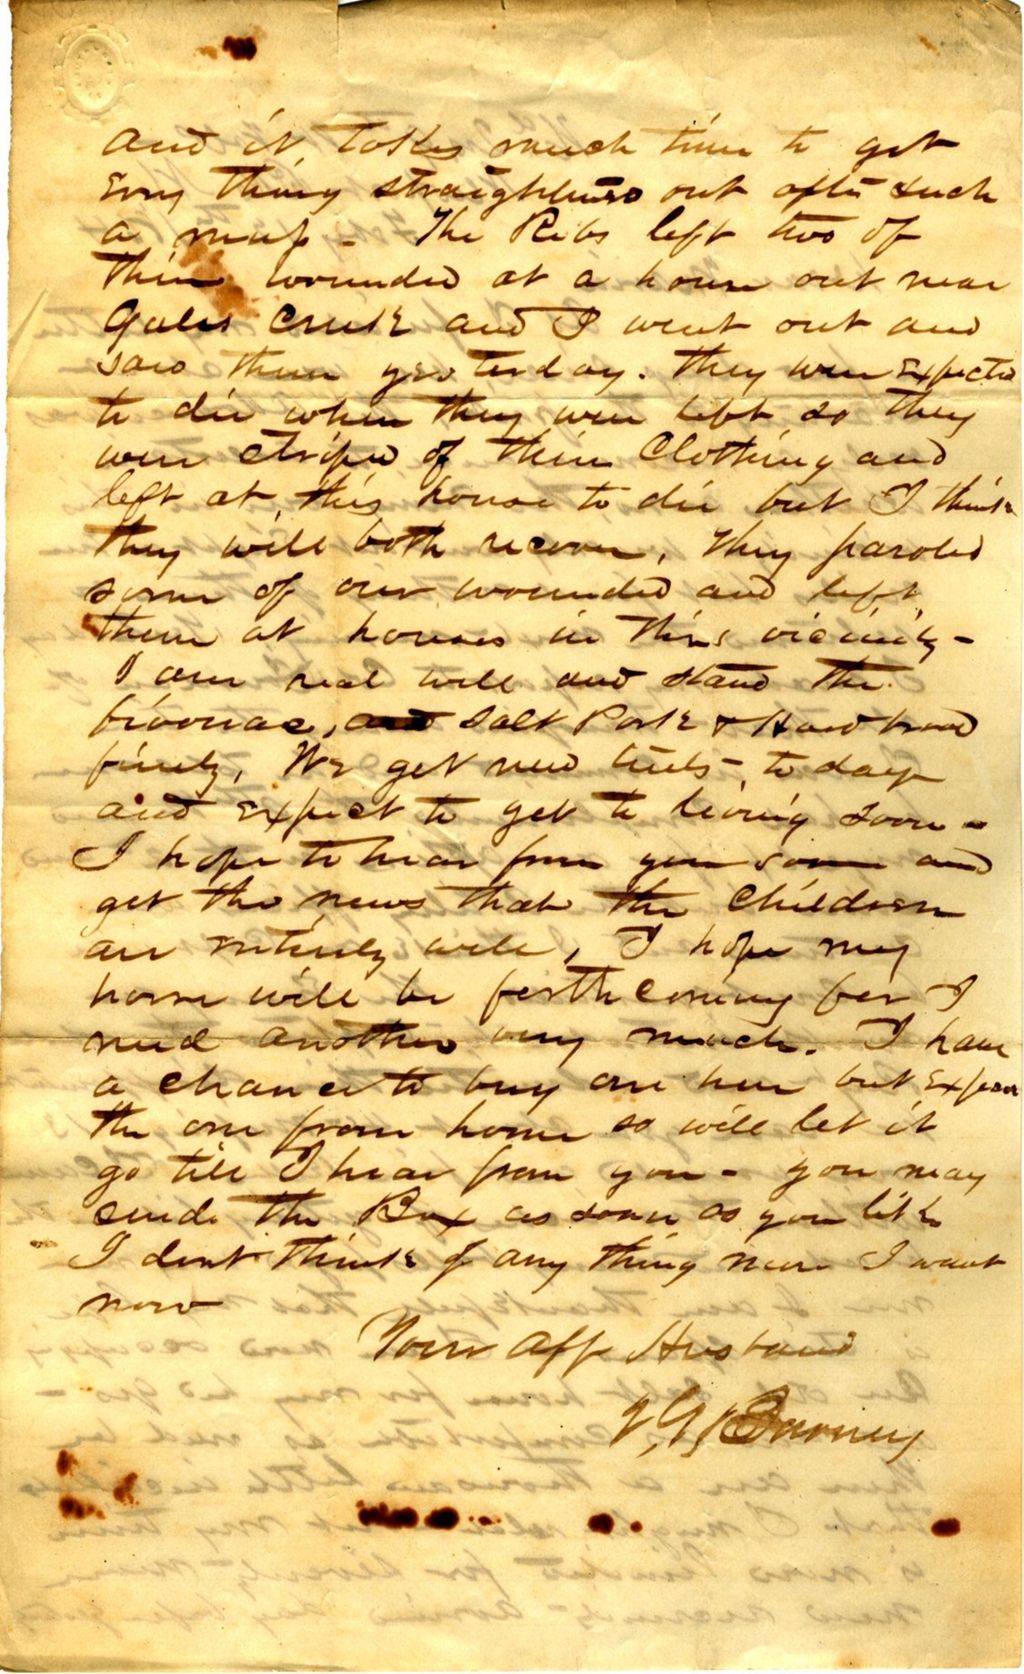 and it takes much time to get
every thing straightened out after such
a muss - The Rebs left two of
their wounded at a house out near
Gales Creek and I went out and
saw them yesterday. They were expected
to die when they were left so they
were striped of their Clothing and
left at this house to die but I think
they will both recover, They paroled
some of our wounded and left
them at houses in this vicinity -
I am real well and stand the
bivouac, and Salt Pork & Hard bread
finely, We get new tents to day
and expect to get to living soon -
I hope to hear from you soon and
get the news that the Children
are entirely well, I hope my
horse will be forthcoming for I
need another very much. I have
a chance to buy one here but expect
the one from home so will let it
go till I hear from you - you may
send the Box as soon as you like
I dont think of any thing more I want
now
Your aff Husband
V. G. Barney